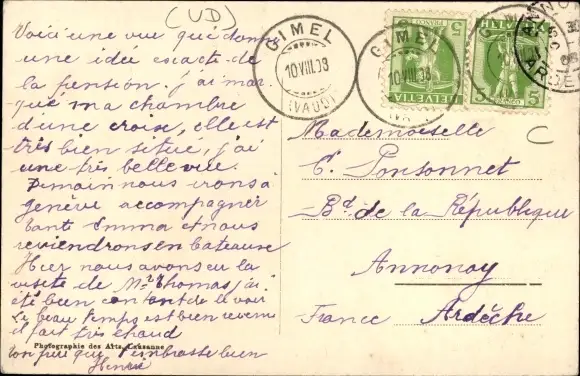 (VD)
Voici une vue qui donne
une idée exacte de
la pension. j'ai mar
qué ma chambre
d'une croix, elle est
très bien situé, j'ai
une très belle vue.
Demain nous irons à
genève accompagner
tante Emma et nous
reviendrons en bateau
Hier nous avons eu la
visite de Mr Thomas j'ai
été bien content de le voir
Le beau temps est bien revenu
il fait très chaud
ton père qui t'embrasse bien
Henri
Photographie des Arts, Lausanne
GIMEL
10 VIII.08
(VAUD)
GIMEL
10 VIII.08
FRANCO 5
HELVETIA
HELVETIA
5 5
ANNONAY
ARDÈ
C
Mademoiselle
C. Ponsonnet
Bd. de la République
Annonay
France Ardèche